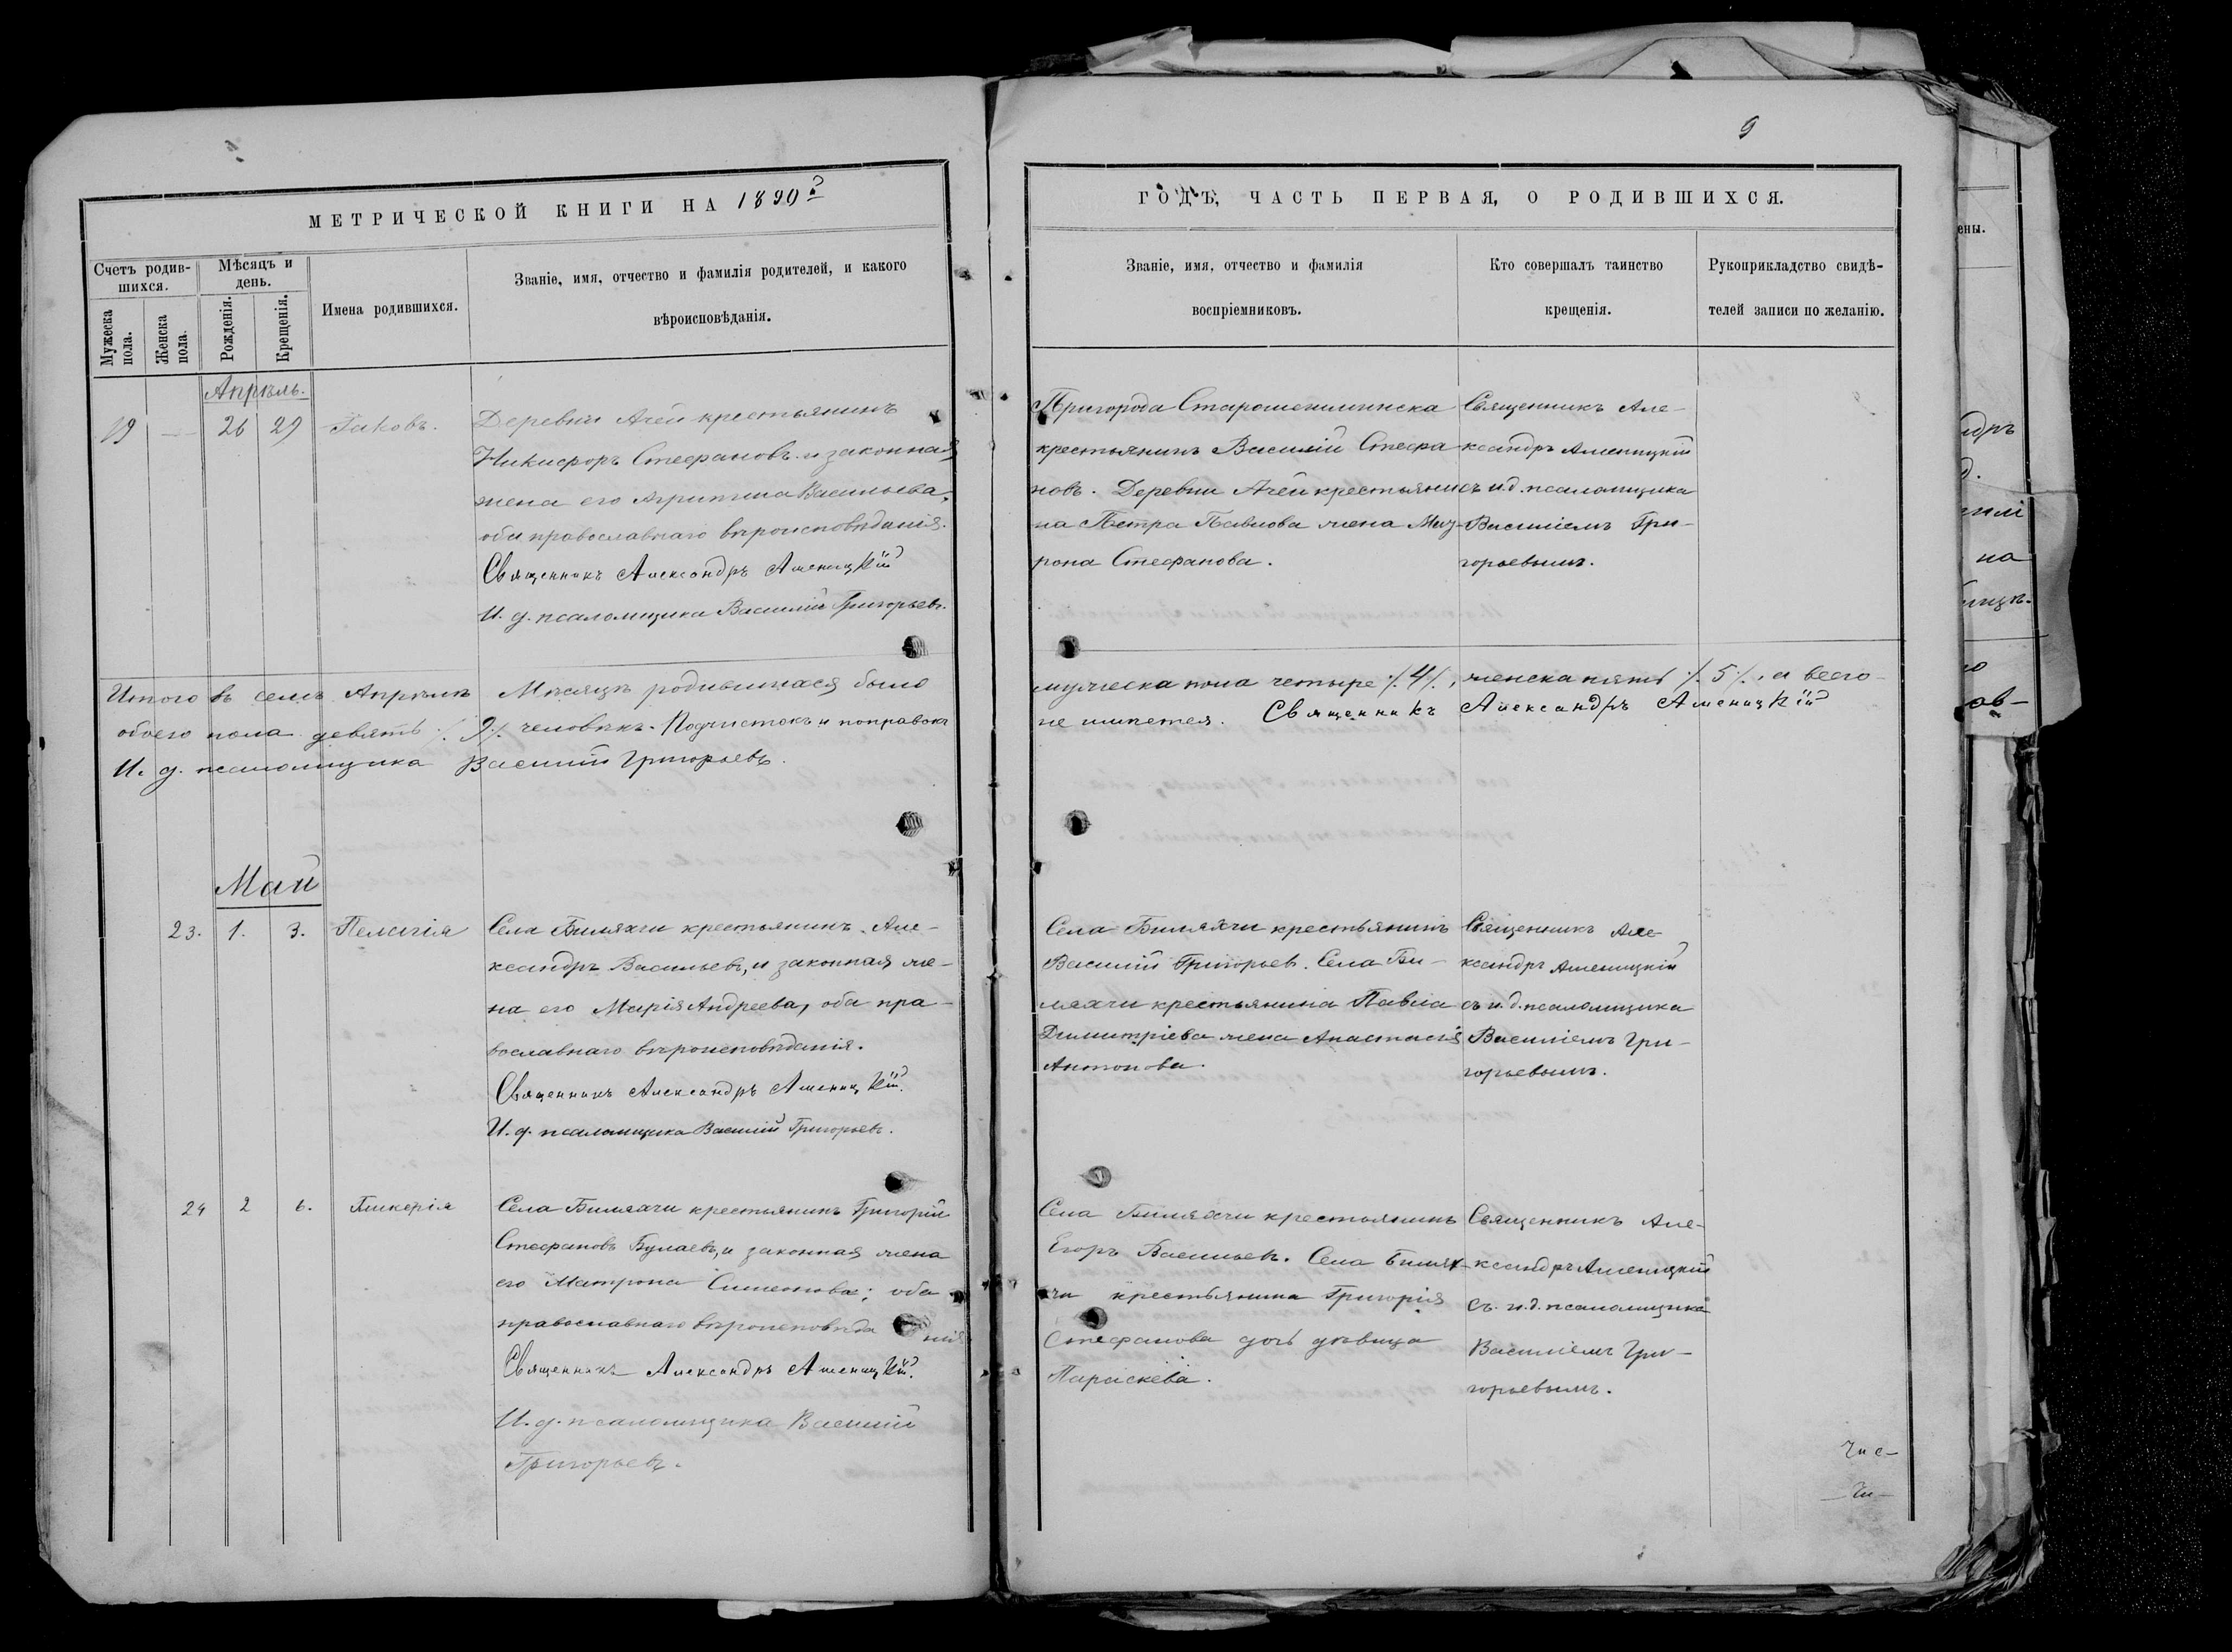 МЕТРИЧЕСКОЙ КНИГИ НА 1890 г
Счетъ родив-
шихся.
Мѣсяцъ и
день.
Мужеска
пола.
Женска
пола.
Рожденія.
Крещенія.
Имена родившихся.
Званіе, имя, отчество и фамилія родителей, и какого
вѣроисповѣданія.
Апрѣль.
19 — 26 29 Іаковъ.
Деревни Ачей крестьянинъ
Никифоръ Стефановъ и законная
жена его Агрипина Васильева,
оба православнаго вѣроисповѣданія.
Священникъ Александръ
И. д. псаломщика Василій Григорьевъ.
Итого въ семъ Апрѣлѣ Мѣсяцѣ родившихся было
обоего пола девять ٪ 9٪ человѣкъ. Подчистокъ и поправокъ
И. д. псаломщика Василій Григорьевъ.
Май
23. 1. 3. Пелагія
Села Билярчи крестьянинъ Але-
ксандръ Васильевъ, и законная же-
на его Марія Андреева, оба пра-
вославнаго вѣроисповѣданія.
Священникъ Александръ
И. д. псаломщика Василій Григорьевъ.
24 2 6. Гликерія
Села крестьянинъ Григорій
Стефановъ Булаевъ, и законная жена
его Матрона Симеонова; оба
православнаго вѣроисповѣданія
Священникъ Александръ
И. д. псаломщика Василій
Григорьевъ.
9
ГОДЪ, ЧАСТЬ ПЕРВАЯ, О РОДИВШИХСЯ.
Званіе, имя, отчество и фамилія
воспріемниковъ.
Кто совершалъ таинство
крещенія.
Рукоприкладство свидѣ-
телей записи по желанію.
Пригорода Старошешминска
крестьянинъ Василій Стефа-
новъ. Деревни Ачей крестьяни-
на Петра Павлова жена Мат-
рона Стефанова.
Священникъ Але-
ксандръ
съ и.д. псаломщика
Василіемъ Гри-
горьевымъ.
мужеска пола четыре ٪ 4٪, женска пять ٪ 5٪, а всего
не имѣется. Священникъ Александръ
Села крестьянинъ
Василій Григорьев. Села
крестьянина Павла
Димитріева жена Анастасія
Антонова.
Священникъ Але-
ксандръ
съ и.д. псаломщика
Василіемъ Гри-
горьевымъ.
Села крестьянинъ
Егоръ Васильевъ. Села
крестьянина Григорія
Стефанова дочь дѣвица
Параскева.
Священникъ Але-
ксандръ
съ и.д. псаломщика
Василіемъ Гри-
горьевымъ.